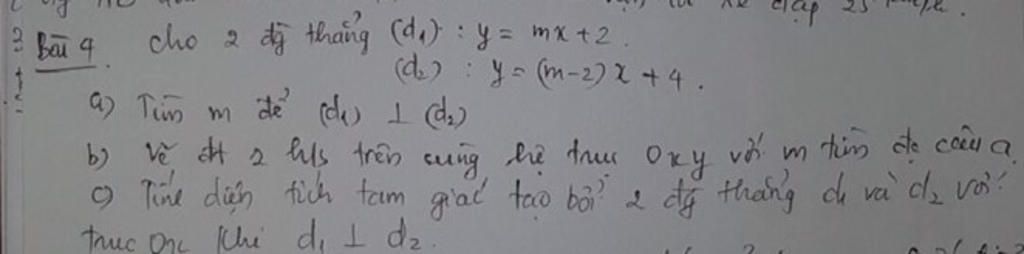 đạp 25 km/h.
Bài 4. cho 2 đg thẳng (d₁) : y = mx + 2.
(d₂) : y = (m-2)x + 4.
a) Tìm m để (d₁) ⊥ (d₂)
b) Vẽ đt 2 h/s trên cùng hệ trục Oxy với m tìm đc câu a.
c) Tính diện tích tam giác tạo bởi 2 đg thẳng d₁ và d₂ với
trục Ox khi d₁ ⊥ d₂.